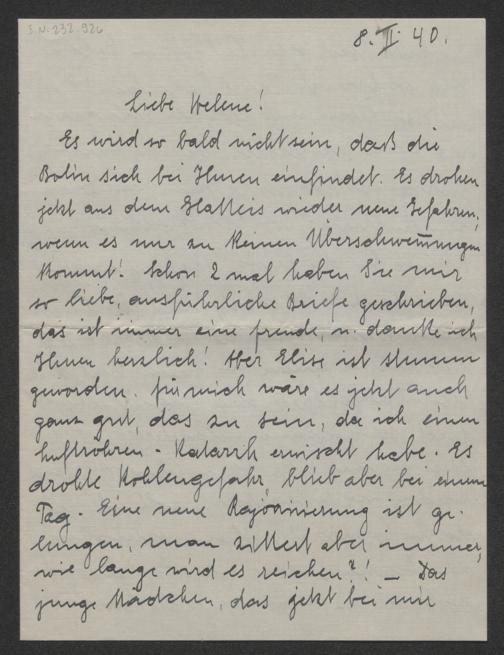 I.N. 232.926
8. II. 40.
Liebe Helene!
Es wird so bald nicht sein, daß die
Botin sich bei Ihnen einfindet. Es drohen
jetzt aus dem Glatteis wieder neue Gefahren,
wenn es nur zu keinen Überschwem̄ungen
kommt! Schon 2 mal haben Sie mir
so liebe, ausführliche Briefe geschrieben,
das ist immer eine Freude, u. danke ich
Ihnen herzlich! Aber Elise ist stumm
geworden. Für mich wäre es jetzt auch
ganz gut, das zu sein, da ich einen
Luftröhren-Katarrh erwischt habe. Es
drohte Kohlengefahr, blieb aber bei einem
Tag. Eine neue Rajonierung ist ge-
lungen, man zittert aber immer,
wie lange wird es reichen?! – Das
junge Mädchen, das jetzt bei mir